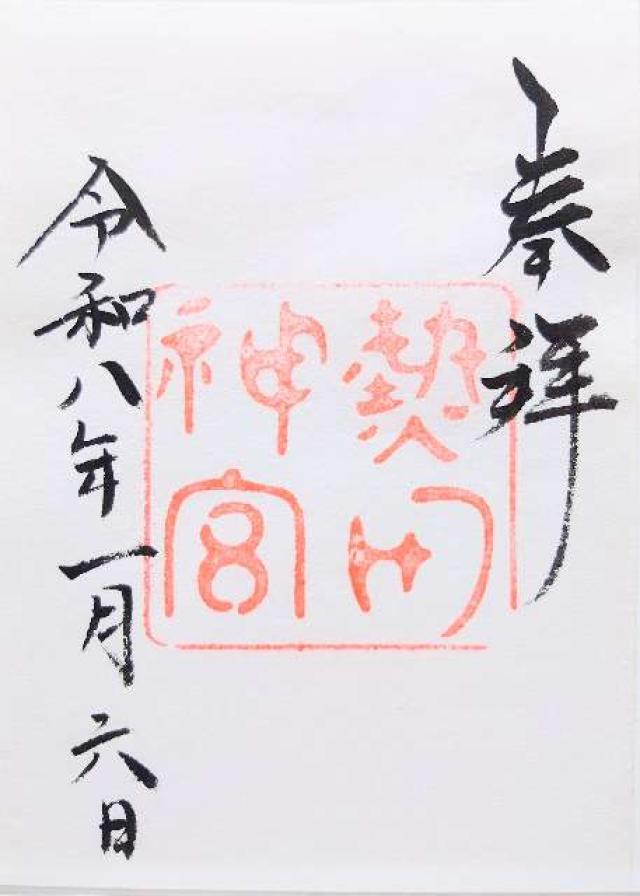 奉拝
熱田
神宮
令和八年一月六日